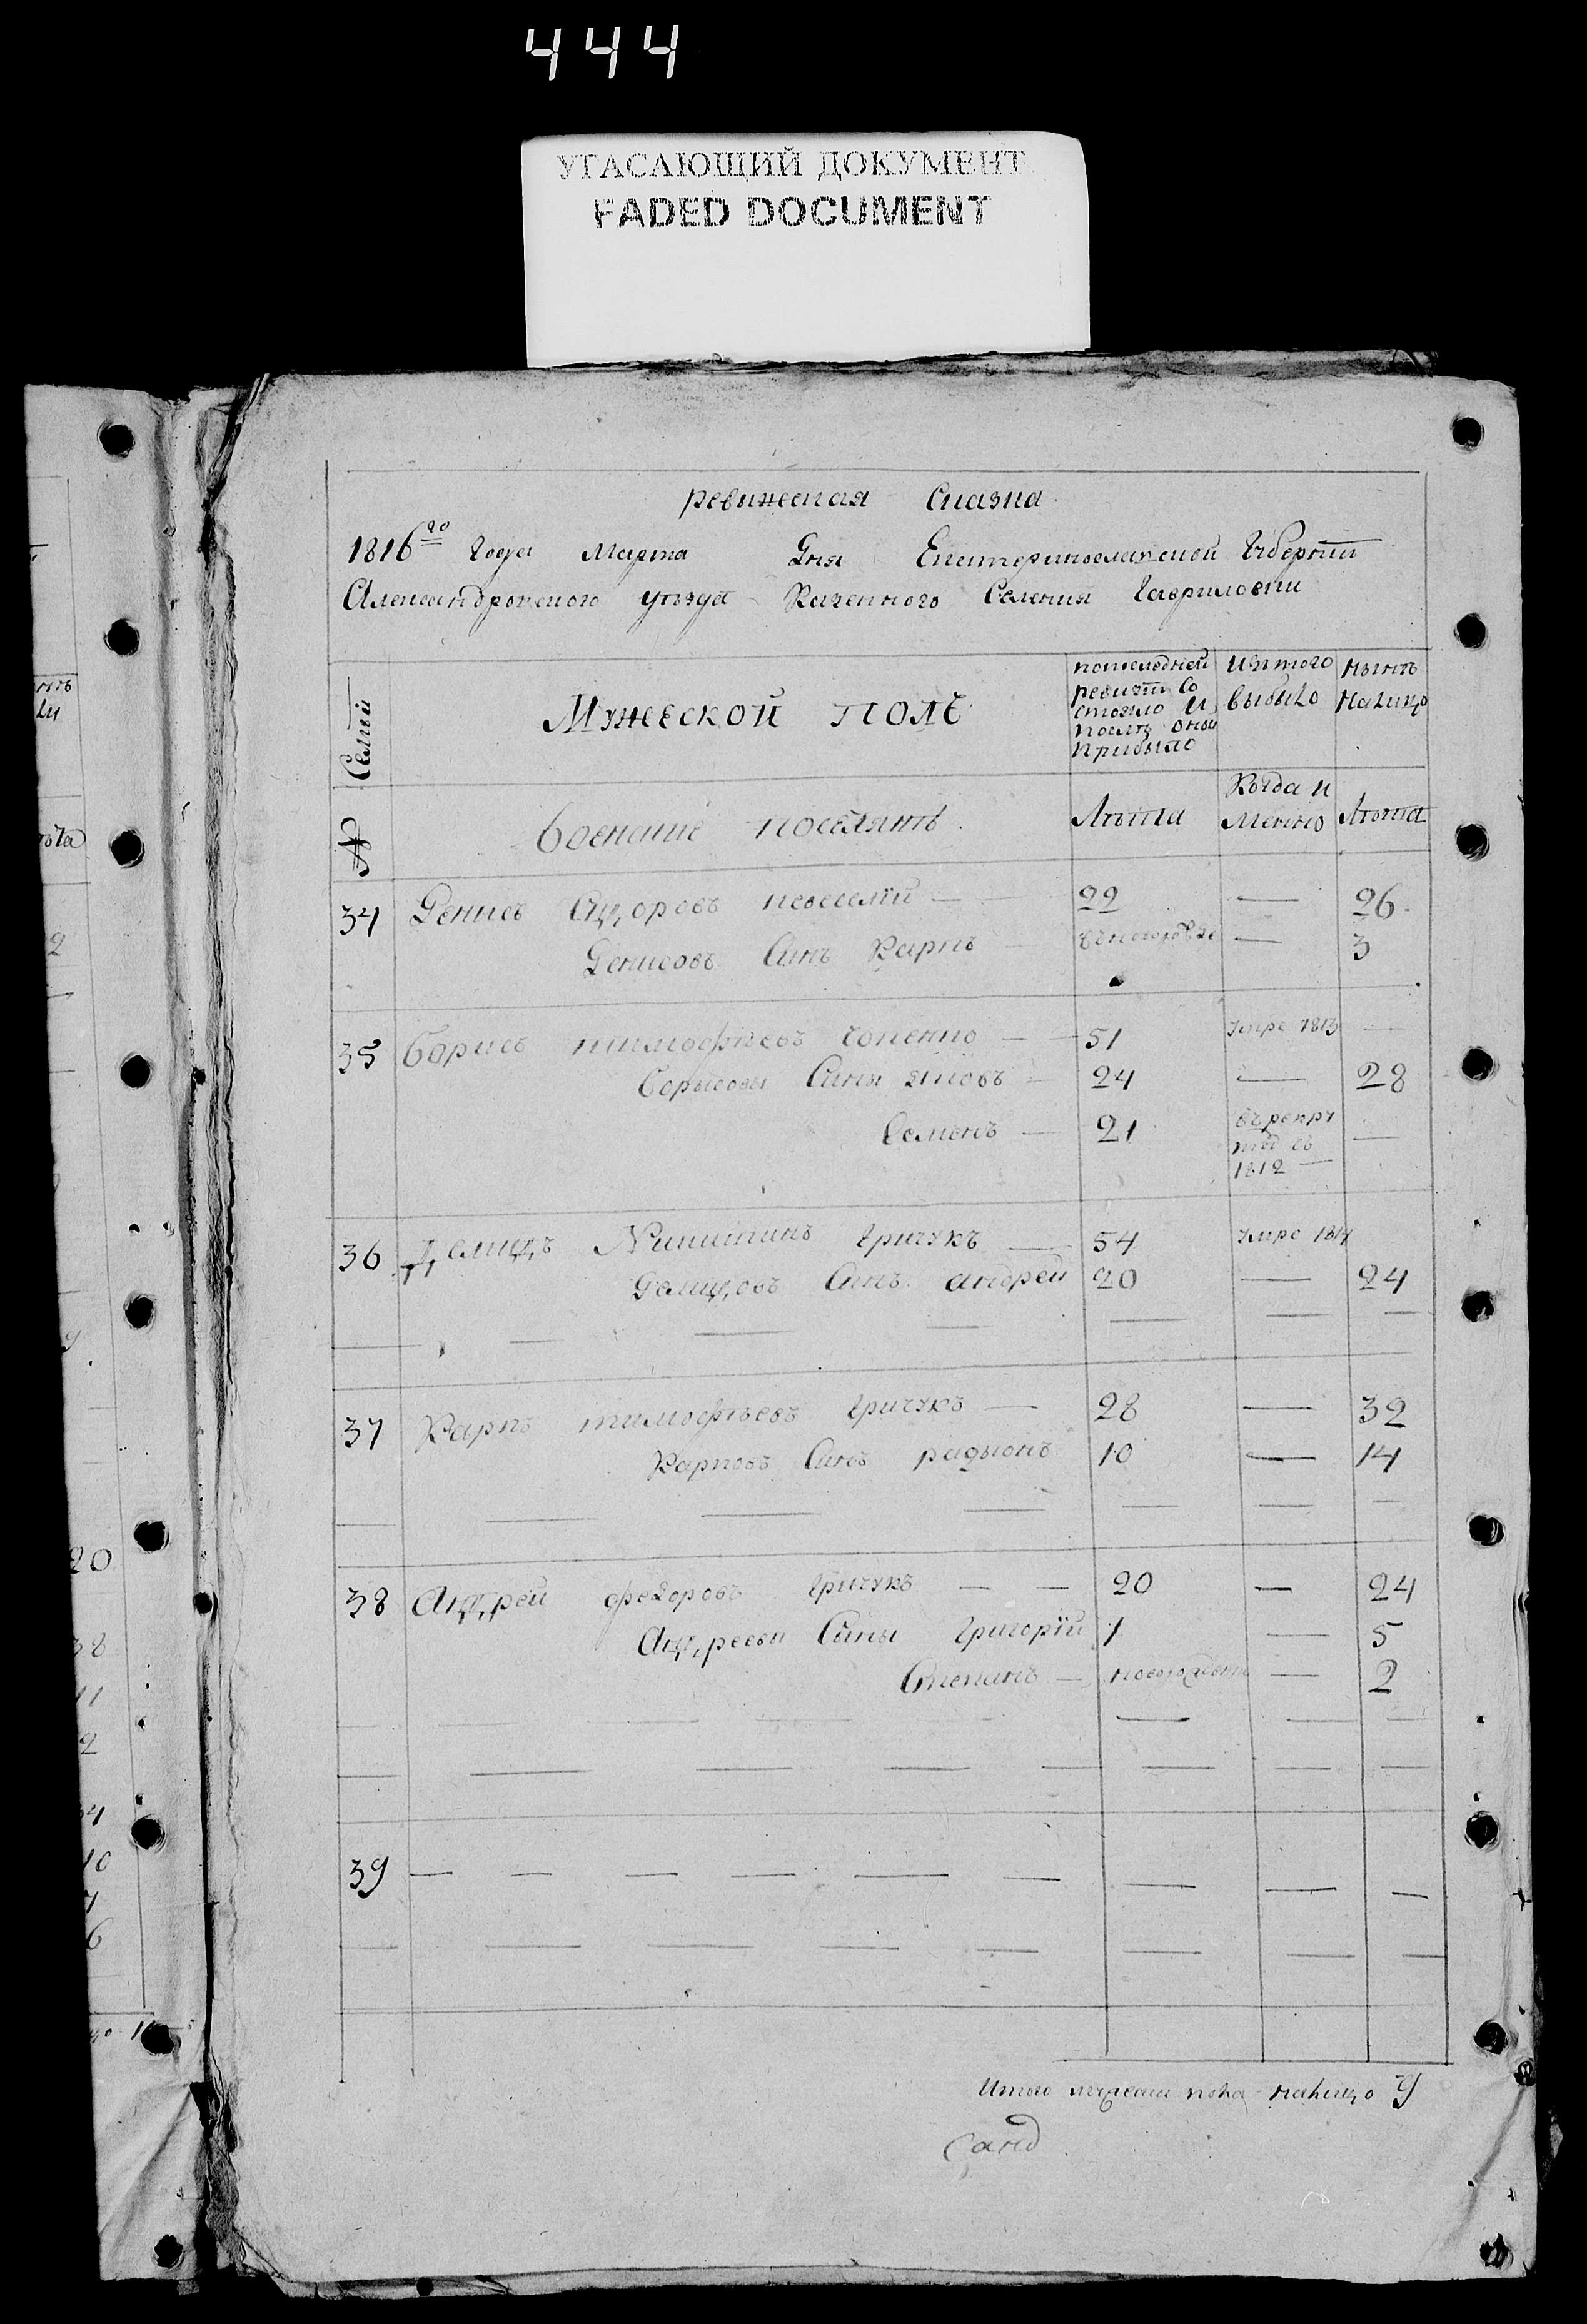 444
УГАСАЮЩИЙ ДОКУМЕНТ
FADED DOCUMENT
ревижская Сказка
1816го Года Марта Дня Екатеринославской Губернїи
Александровского уѣзда Казенного Селения Гавриловки
№ Семьи
Мужеской полъ
попоследней ревизїи Состояло и послѣ оной прибыло
Изтого выбыло
нынѣ налицо
военние поселянѣ
Лѣта
Когда иМенно
Лѣта
34 Денисъ невеселїй — 22 — 26
Денисовъ Синъ Карпъ — — 3
35 Борисъ тимофѣевъ — 51 умре 1813 —
Борисовы Сины яковъ — 24 — 28
Семенъ — 21 въ рекру тѣ въ 1812 —
36 Никитинъ Гричукъ — 54 умре 1814
Синъ андрей 20 — 24
37 Карпъ тимофѣевъ Гричукъ — 28 — 32
Карповъ Синъ радыонъ 10 — 14
38 Андрей федоровъ Гричукъ — — 20 — 24
Андреевы Сыны Григорїй 1 — 5
Степанъ — новорожденъ — 2
39
Итого мужеска пола налицо 9